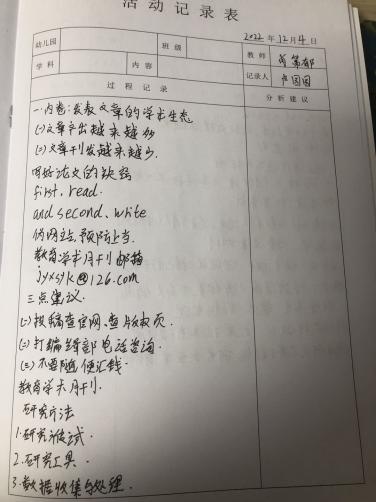 活动记录表
2022年12月4日
幼儿园 班级 教师
学科 内容 记录人 卢园园
过程记录 分析建议
一.内卷:发表文章的学术生态
(一)文章产出越来越多
(二)文章刊发越来越少.
写好论文的缺弱
first.read.
and second、write
伪网站.预防上当.
教育学术月刊邮箱
jyxsyk@126.com
三点建议.
(一)投稿查官网、查版权页.
(二)打编辑部电话咨询.
(三)不要随便汇钱.
教育学术月刊.
研究方法
1.研究范式.
2.研究工具.
3.数据收集与处理.